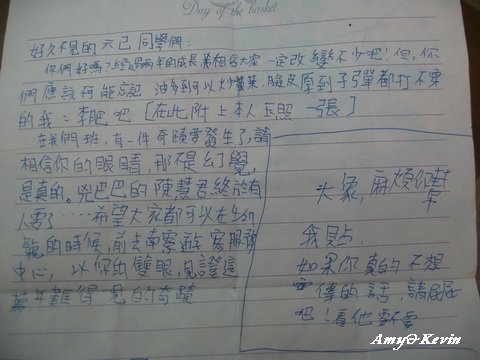 Day of the basket
好久不見的六己同學們:
你們好嗎?經過兩年的成長 弟相信大家一定改變不少吧!但,你
們應該何能忘記 油多到可以炒黃菜,臉皮厚到子彈都打不穿
的我:李肥吧[在此附上本人玉照一張]
在我們班,有一件奇蹟要發生了,請
相信你的眼睛,那不是幻覺,
是真的。兇巴巴的陳慧君終於有
人要了⋯⋯希望大家都可以在生
的時候,前去南寮遊客服務
中心,以你的雙眼,見證這
年難得見的奇蹟
大象,麻煩你幫
我貼.
如果你真的不想
傳的話,請
吧!看他要不要
Amy∂Kevin